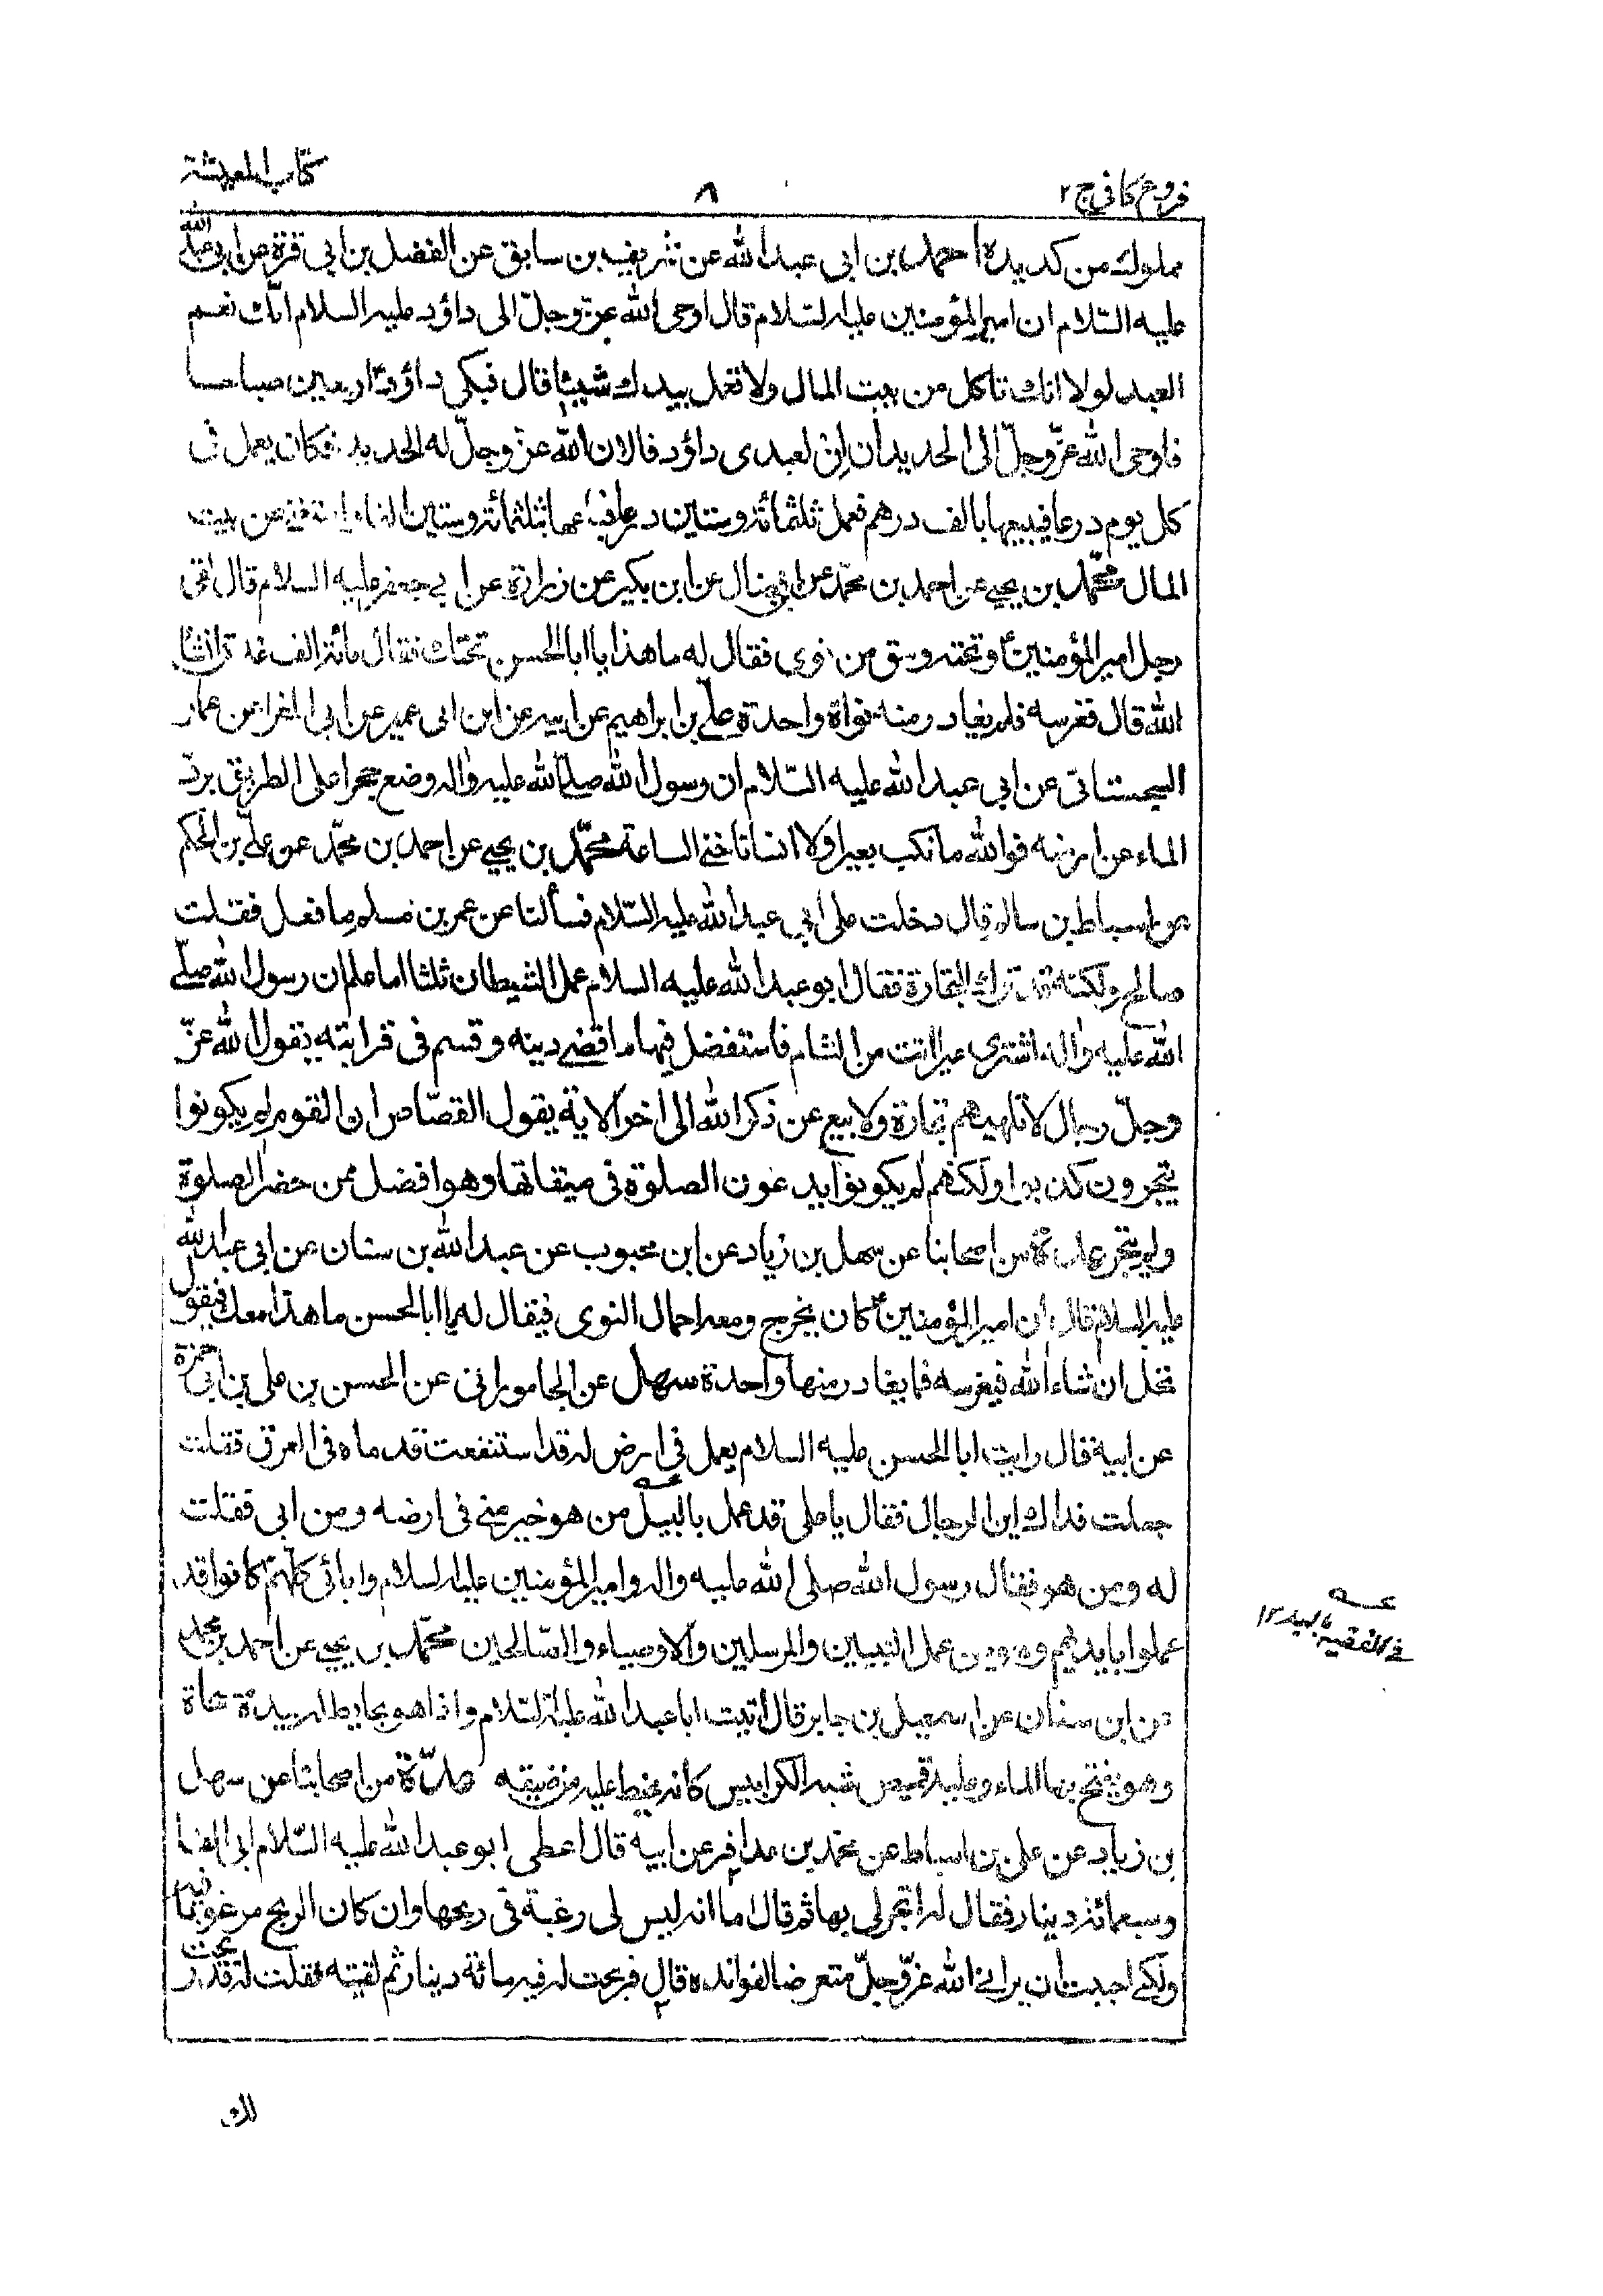 فروع کافی ج ۲
۸
کتاب المعیشة
مملوك من كد يده احمد بن ابی عبد الله عن شريف بن سابق عن الفضل بن ابی قرة عن ابی عبد الله
عليه السّلام ان امير المؤمنين عليه السّلام قال اوحى الله عزّ وجلّ الى داؤد عليه السلام انّك نعم
العبد لولا انك تاكل من بيت المال ولا تعمل بيدك شيئا قال فبكى داؤدؑ اربعين صباحا
فاوحى الله عزّ وجلّ الى الحديد أن لِن لعبدى داؤد فالان الله عزّ وجلّ له الحديد فكان يعمل فى
كل يوم درعا فيبيعها بالف درهم فعمل ثلثمائة وستين درعا فباعها بثلثمائة وستين الفا واستغنى عن بيت
المال محمّد بن يحيى عن احمد بن محمّد عن ابن فضال عن ابن بكير عن زرارة عن ابی جعفر عليه السلام قال لقى
رجل امير المؤمنينؑ وتحته وسق من نوى فقال له ما هذا يا ابا الحسن تحتك فقال مائة الف عذق انشاء
الله قال فغرسه فلم يغادر منه نواة واحدة علىّ بن ابراهيم عن ابيه عن ابن ابی عمير عن ابی المغرا عن عمار
السجستانی عن ابی عبد الله عليه السّلام ان رسول الله صلى الله عليه واله وضع حجرا على الطريق يردّ
الماء عن ارضه فوالله ما نكب بعيرا ولا انسانا حتى الساعة محمّد بن يحيى عن احمد بن محمّد عن علىّ بن الحكم
عن اسباط بن سالم قال دخلت على ابی عبد الله عليه السّلام فسألنا عن عمر بن مسلم ما فعل فقلت
صالح ولكنه قد ترك التجارة فقال ابو عبد الله عليه السلام عمل الشيطان ثلثا اما علم ان رسول الله صلى
الله عليه واله اشترى عيرا اتت من الشام فاستفضل فيها ما قضى دينه وقسم فى قرابته يقول الله عزّ
وجلّ رجال لا تلهيهم تجارة ولا بيع عن ذكر الله الى اخر الاية يقول القصّاص ان القوم لم يكونوا
يتجرون كذبوا ولكنهم لم يكونوا يدعون الصلوة فى ميقاتها وهو افضل ممن حضر الصلوة
ولم يتجر عدة من اصحابنا عن سهل بن زياد عن ابن محبوب عن عبد الله بن سنان عن ابی عبد الله
عليه السلام قال ان امير المؤمنينؑ كان يخرج ومعه احمال النوى فيقال له يا ابا الحسن ما هذا معك فيقول
نخل ان شاء الله فيغرسه فما يغادر منها واحدة سهل عن الجامورانی عن الحسن بن على بن ابی حمزة
عن ابيه قال رايت ابا الحسن عليه السلام يعمل فى ارض له قد استنقعت قدماه فى العرق فقلت
جعلت فداك اين الرجال فقال يا على قد عمل بالبيل من هو خير منى فى ارضه ومن ابی فقلت
له ومن هو فقال رسول الله صلى الله عليه واله وامير المؤمنين عليه السلام وابائی كلّهم كانوا قد
عملوا بايديهم وهو من عمل النبيين والمرسلين والاوصياء والصّالحين محمّد بن يحيى عن احمد بن محمد
عن ابن سنان عن اسمعيل بن جابر قال اتيت ابا عبد الله عليه السّلام واذا هو بحايط له بيده مسحاة
وهو يفتح بها الماء وعليه قميص شبه الكرابيس كانه مخيط عليه من ضيقه عدّة من اصحابنا عن سهل
بن زياد عن على بن اسباط عن محمّد بن عذافر عن ابيه قال اعطى ابو عبد الله عليه السّلام ابی الفا
وسبعمائة دينار فقال له اتجر لى بها ثم قال اما انه ليس لى رغبة فى ربحها وان كان الربح مرغوبا فيه
ولكنى احببت ان يرانى الله عزّ وجلّ متعرضا لفوائده قال فربحت له فيه مائة دينار ثم لقيته فقلت له قد ربحت
لك
عـه
فى الفقيه باليد ۱۲